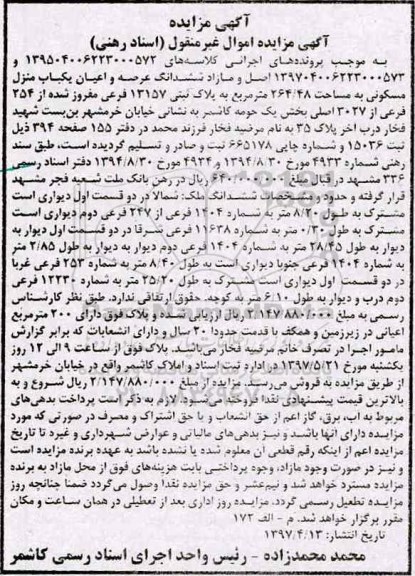 آگهی مزایده
آگهی مزایده اموال غیرمنقول (اسناد رهنی)
به موجب پرونده‌های اجرائی کلاسه‌های ۱۳۹۵۰۴۰۰۶۲۲۳۰۰۰۵۷۳ و
۱۳۹۷۰۴۰۰۶۲۲۳۰۰۰۵۷۳ اصل و مازاد ششدانگ عرصه و اعیان یکباب منزل
مسکونی به مساحت ۲۶۴/۴۸ مترمربع به پلاک ثبتی ۱۳۱۵۷ فرعی مفروز شده از ۲۵۴
فرعی از ۳۰۲۷ اصلی بخش یک حومه کاشمر به نشانی خیابان خرمشهر بن‌بست شهید
فخار درب اخر پلاک ۳۵ به نام مرضیه فخار فرزند محمد در دفتر ۱۵۵ صفحه ۳۹۴ ذیل
ثبت ۱۵۰۳۶ و شماره چاپی ۶۶۵۱۷۸ ثبت و صادر و تسلیم گردیده است، طبق سند
رهنی شماره ۴۹۳۳ مورخ ۱۳۹۴/۸/۳۰ و ۴۹۳۴ مورخ ۱۳۹۴/۸/۳۰ دفتر اسناد رسمی
۳۳۶ مشهد در قبال مبلغ ۶۴۰/۰۰۰/۰۰۰ ریال در رهن بانک ملت شعبه فجر مشهد
قرار گرفته و حدود و مشخصات ششدانگ ملک: شمالا در دو قسمت اول دیواری است
مشترک به طول ۸/۲۰ متر به شماره ۱۴۰۴ فرعی از ۲۴۷ فرعی دوم دیواری است
مشترک به طول ۰/۳۰ متر به شماره ۱۱۶۳۸ فرعی شرقا در دو قسمت اول دیوار به
دیوار به طول ۲۸/۴۵ متر به شماره ۱۴۰۴ فرعی دوم دیوار به دیوار به طول ۲/۸۵ متر
به شماره ۱۴۰۴ فرعی جنوبا دیواری است به طول ۸/۴۰ متر به شماره ۲۵۳ فرعی غربا
در دو قسمت اول دیواری است مشترک به طول ۲۵/۲۰ متر به شماره ۱۲۲۳۰ فرعی
دوم درب و دیوار به طول ۶/۱۰ متر به کوچه. حقوق ارتفاقی ندارد. طبق نظر کارشناس
رسمی به مبلغ ۲/۱۴۷/۸۸۰/۰۰۰ ریال ارزیابی شده و پلاک فوق دارای ۲۰۰ مترمربع
اعیانی در زیرزمین و همکف با قدمت حدودا ۳۰ سال و دارای انشعابات که برابر گزارش
مامور اجرا در تصرف خانم مرضیه فخار می‌باشد. پلاک فوق از ساعت ۹ الی ۱۲ روز
یکشنبه مورخ ۱۳۹۷/۵/۲۱ در اداره ثبت اسناد و املاک کاشمر واقع در خیابان خرمشهر
از طریق مزایده به فروش می‌رسد. مزایده از مبلغ ۲/۱۴۷/۸۸۰/۰۰۰ ریال شروع و به
بالاترین قیمت پیشنهادی نقدا فروخته می‌شود. لازم به ذکر است پرداخت بدهی‌های
مربوط به آب، برق، گاز اعم از حق انشعاب و یا حق اشتراک و مصرف در صورتی که مورد
مزایده دارای آنها باشد و نیز بدهی‌های مالیاتی و عوارض شهرداری و غیره تا تاریخ
مزایده اعم از اینکه رقم قطعی آن معلوم شده یا نشده باشد به عهده برنده مزایده است
و نیز در صورت وجود مازاد، وجوه پرداختی بابت هزینه‌های فوق از محل مازاد به برنده
مزایده مسترد خواهد شد و نیم‌عشر و حق مزایده نقدا وصول می‌گردد ضمنا چنانچه روز
مزایده تعطیل رسمی گردد، مزایده روز اداری بعد از تعطیلی در همان ساعت و مکان
مقرر برگزار خواهد شد. م - الف ۱۷۲
تاریخ انتشار: ۱۳۹۷/۴/۱۳
محمد محمدزاده - رئیس واحد اجرای اسناد رسمی کاشمر